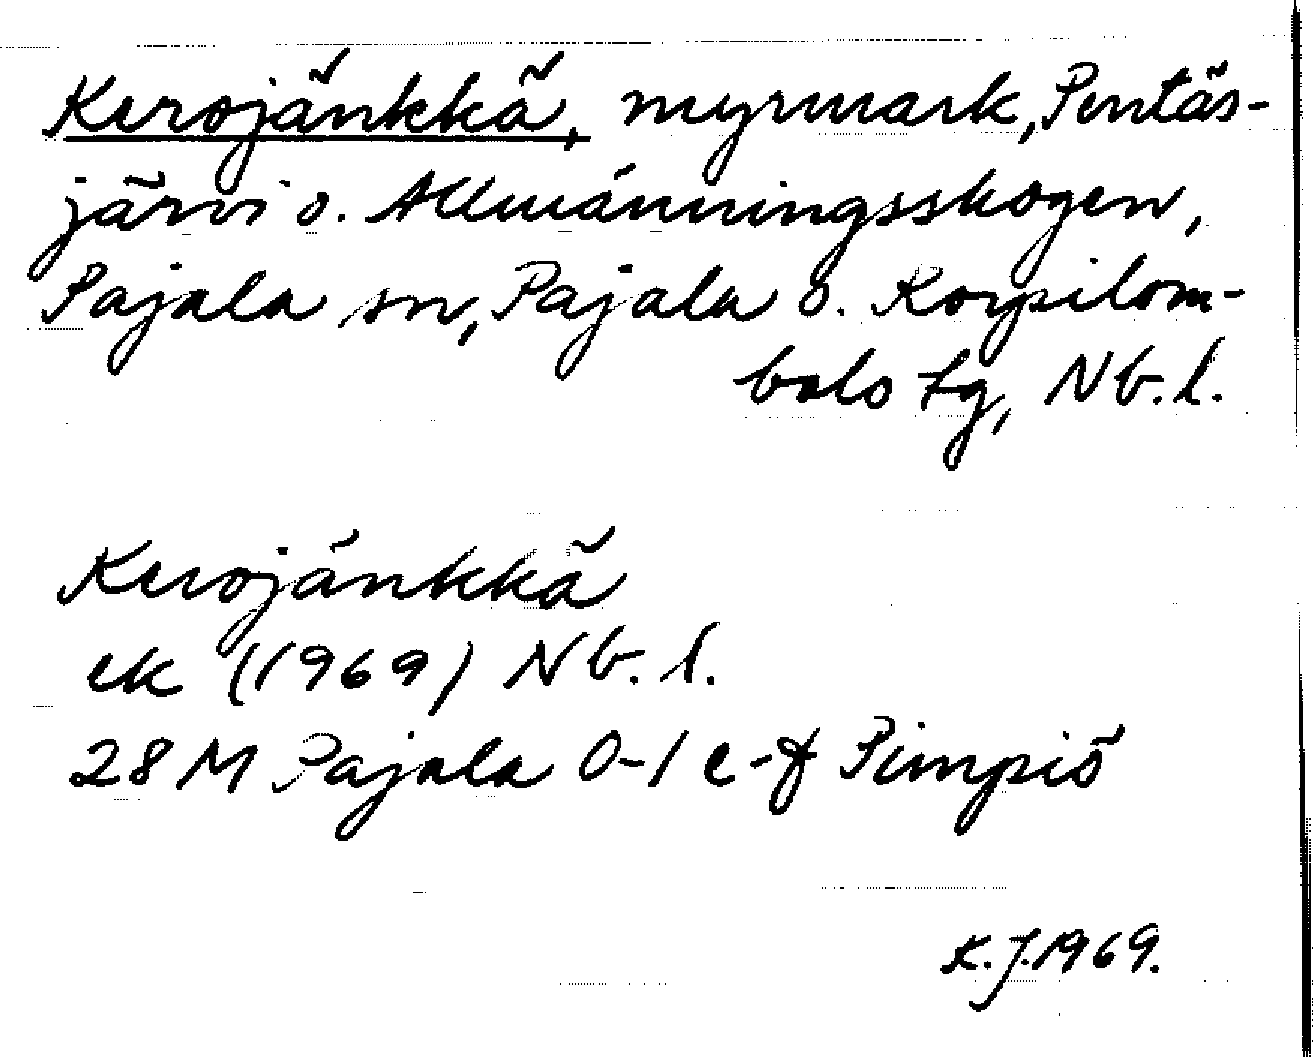 Kerojänkkä, myrmark, Pentäs-
järvi o. Allmänningsskogen,
Pajala sn, Pajala o. Korpilom-
bolo tg, Nb.l.
Kerojänkkä
ek (1969) Nb.l.
28 M Pajala 0-1 e-f Pimpiö
K.J. 1969.